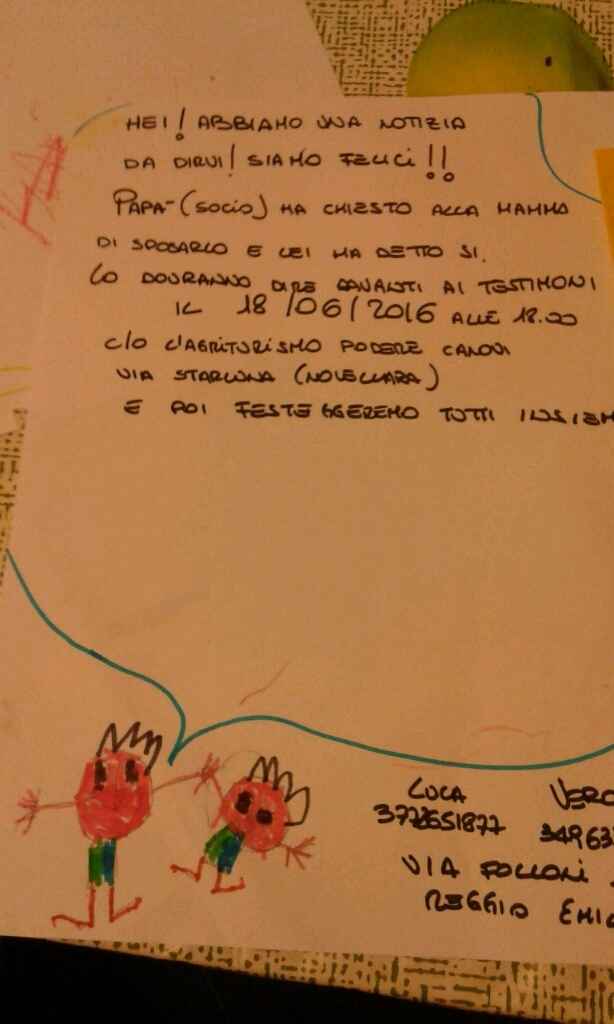 HEI! ABBIAMO UNA NOTIZIA
DA DIRVI! SIAMO FELICI!!
PAPÀ (SOCIO) HA CHIESTO ALLA MAMMA
DI SPOSARLO E LEI HA DETTO SI.
LO DOVRANNO DIRE DAVANTI AI TESTIMONI
IL 18/06/2016 ALLE 18.00
C/O L'AGRITURISMO PODERE CANOVI
VIA STARLUNA (NOVELLARA)
E POI FESTEGGEREMO TUTTI INSIEM
LUCA VERO
3772651877 34963
VIA FOLLONI
REGGIO EMIL